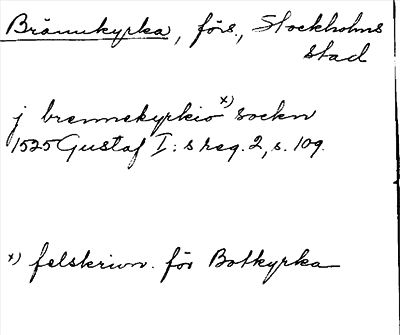 Brännkyrka, förs., Stockholms
stad
j brennekyrkio x) sockn
1525 Gustaf I:s reg. 2, s. 109.
x) felskrivn. för Botkyrka